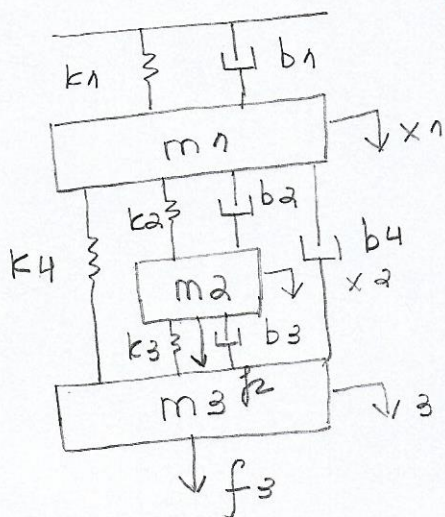 k1 b1
m1 x1
k2 b2
k4 b4
m2 x2
k3 b3
m3 f2
3
f3